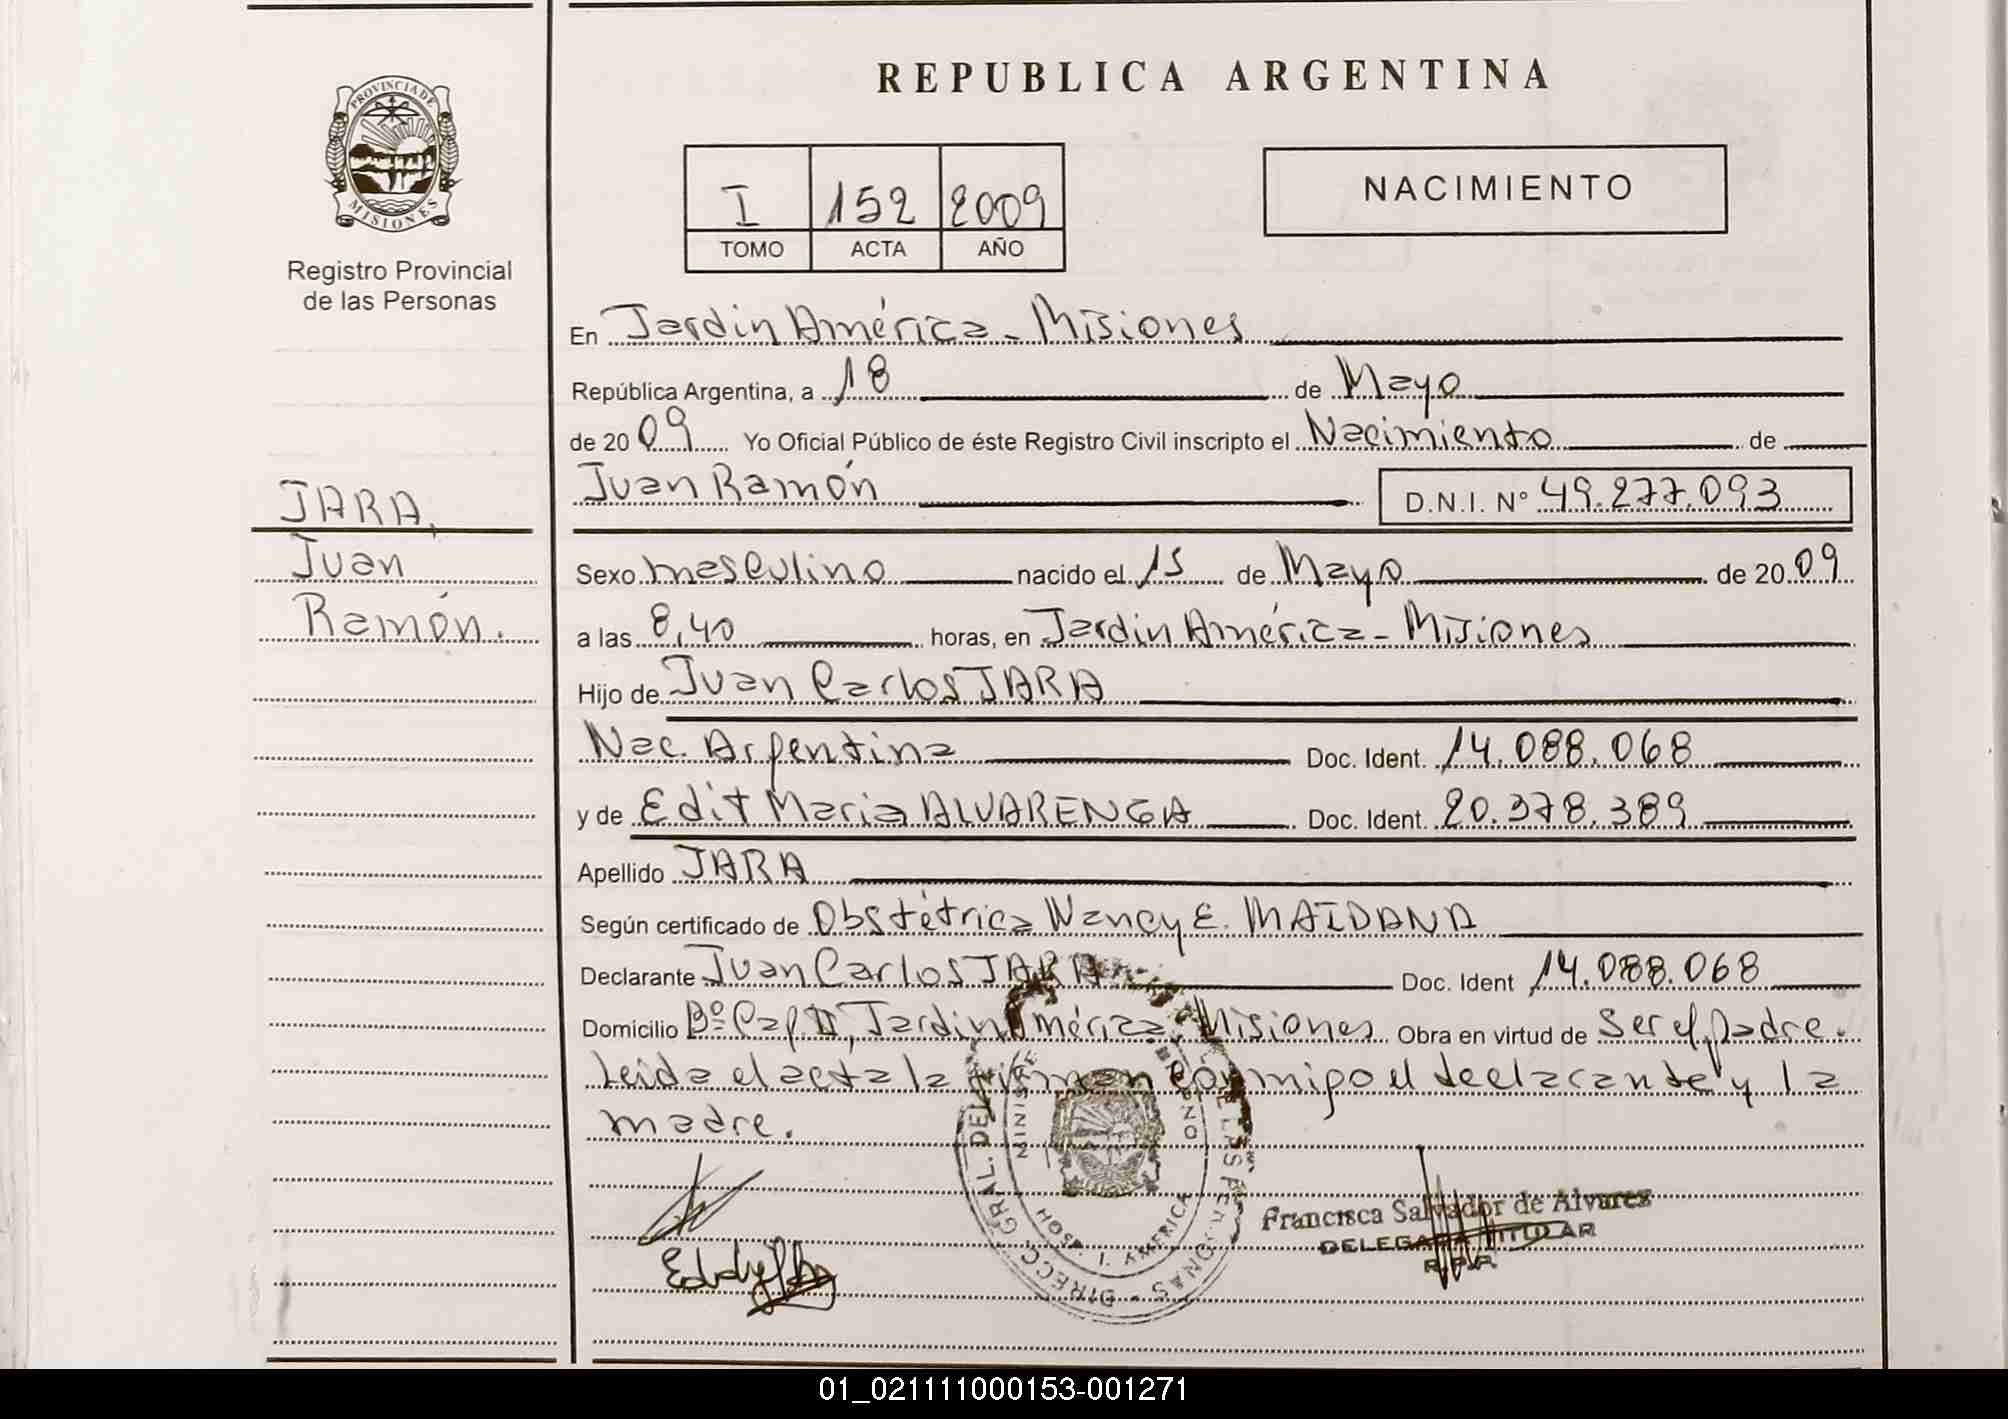 REPUBLICA ARGENTINA
PROVINCIA DE
MISIONES
Registro Provincial
de las Personas
I 152 2009
TOMO ACTA AÑO
NACIMIENTO
En Jardín América - Misiones
República Argentina, a 18 de Mayo
de 2009 Yo Oficial Público de éste Registro Civil inscripto el Nacimiento de
Juan Ramón D.N.I. Nº 49.277.093
JARA,
Juan
Ramón.
Sexo masculino nacido el 15 de Mayo de 2009
a las 8,40 horas, en Jardín América - Misiones
Hijo de Juan Carlos JARA
Nac. Argentina Doc. Ident. 14.088.068
y de Edit Maria ALVARENGA Doc. Ident. 20.378.389
Apellido JARA
Según certificado de Obstétrica Nancy E. MAIDANA
Declarante Juan Carlos JARA Doc. Ident 14.088.068
Domicilio Bº Cap. II, Jardín América Misiones Obra en virtud de ser el padre.
Leida el acta la firman conmigo el declarante y la
madre.
DIRECC. GRAL. DEL DE LAS PERSONAS
J. AMERICA
Francisca Salvador de Alvares
DELEGADA TITULAR
R.P.P.
01_021111000153-001271